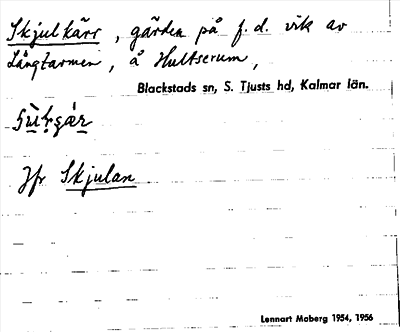 Skjulkärr, gärden på f.d. vik av
Långtarmen, å Hultserum,
Blackstads sn, S. Tjusts hd, Kalmar län.
Jfr Skjulan
Lennart Moberg 1954, 1956